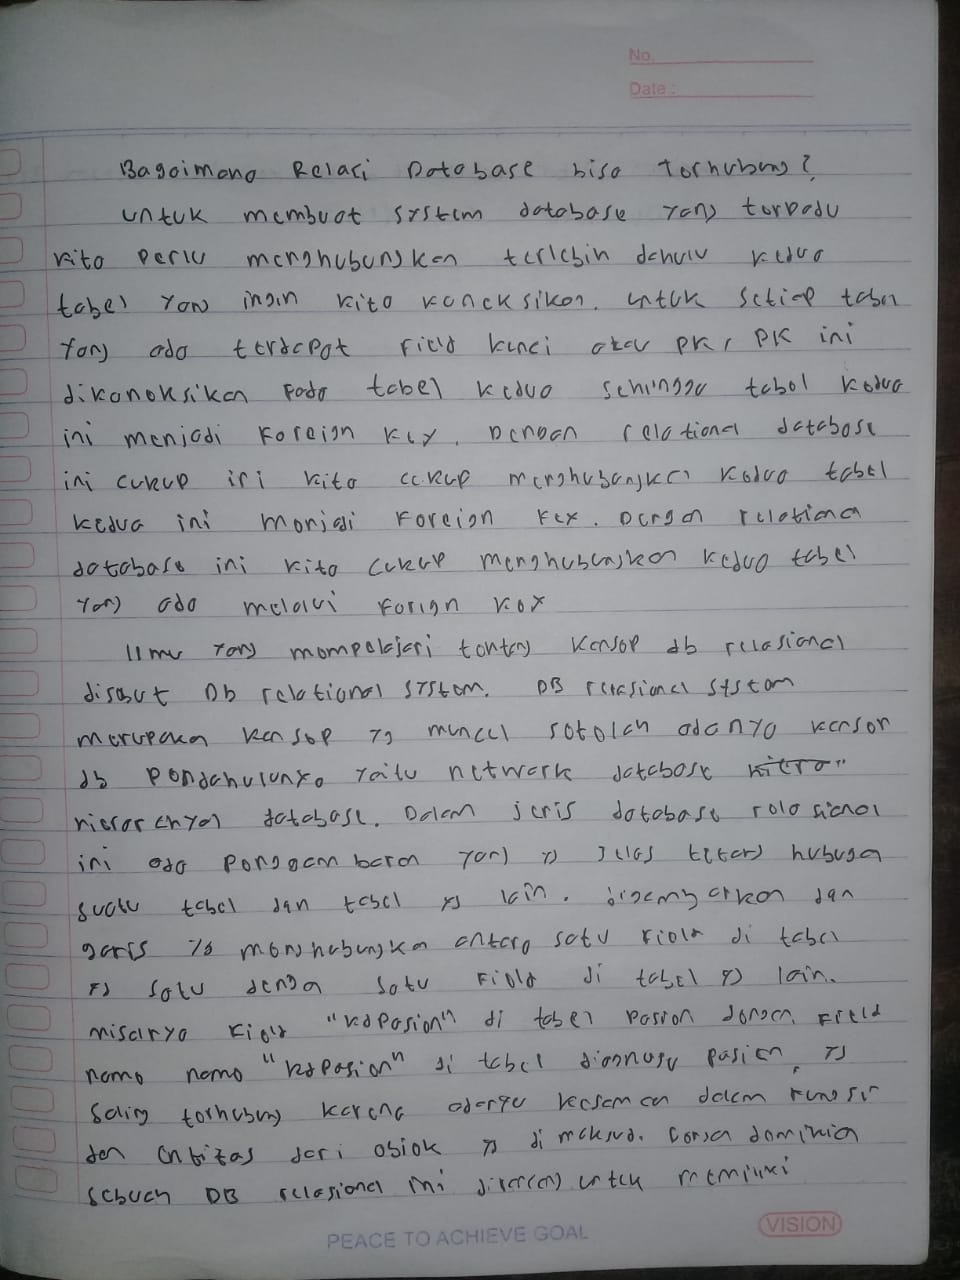 No.
Date :
Bagaimana Relasi Database bisa terhubung?
untuk membuat system database yang terpadu
kita perlu menghubungkan terlebih dahulu kedua
tabel yang ingin kita koneksikan. untuk setiap tabel
yang ada terdapat field kunci atau PK, PK ini
dikoneksikan pada tabel kedua sehingga tabel kedua
ini menjadi Foreign key. Dengan relational database
ini cukup ini kita cukup menghubungkan kedua tabel
kedua ini menjadi Foreign key. Dengan relational
database ini kita cukup menghubungkan kedua tabel
yang ada melalui Forign key
Ilmu yang mempelajari tentang konsep db relasional
disebut Db relational system. DB relasional system
merupakan konsep yg muncul setelah adanya konsep
db pendahulunya yaitu network database
hierarchycal database. Dalam jenis database relasional
ini ada penggambaran yang yg jelas tentang hubungan
suatu tabel dan tabel yg lain. digambarkan dan
garis yg menghubungkan antara satu field di tabel
yg satu dengan satu field di tabel yg lain.
misalnya field "kdpasien" di tabel pasien dengan field
nama nama "kdpasien" di tabel diagnosa pasien, yg
saling terhubung karena adanya kesamaan dalam fungsi
dan entitas dari objek yg di maksud. dominia
sebuah DB relasional ini dirancang untuk memiliki
PEACE TO ACHIEVE GOAL
VISION